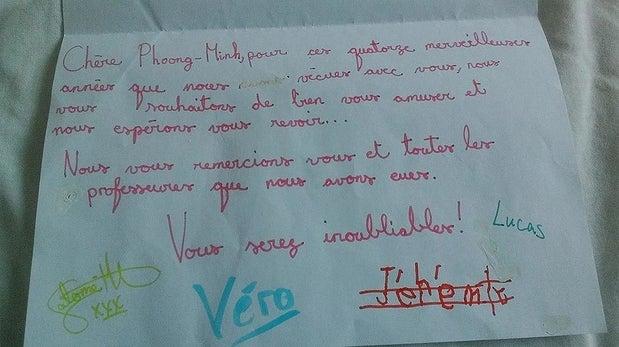 Chère Phoong-Minh, pour ces quatorze merveilleuses
années que nous vécues avec vous, nous
vous souhaitons de bien vous amuser et
nous espérons vous revoir...
Nous vous remercions vous et toutes les
professeures que nous avons eues.
Vous serez inoubliables! Lucas
xxx
Véro